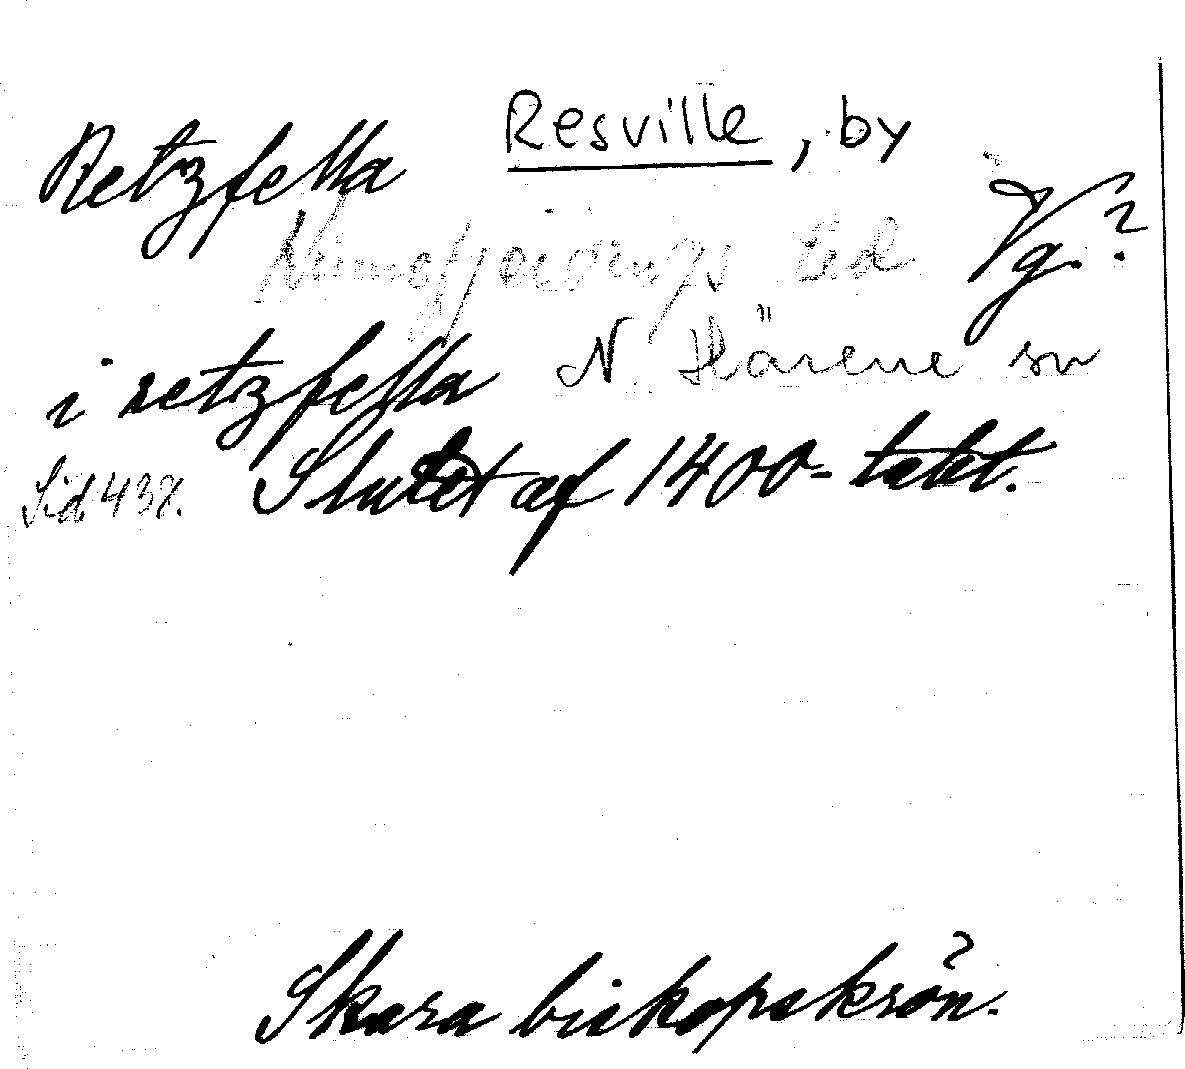 Retzfella Resville, by Vg.?
Kinnefjerdings hd
i retzfella N. Härene sn
Sid. 437. Slutet af 1400-talet.
Skara biskopskrön.